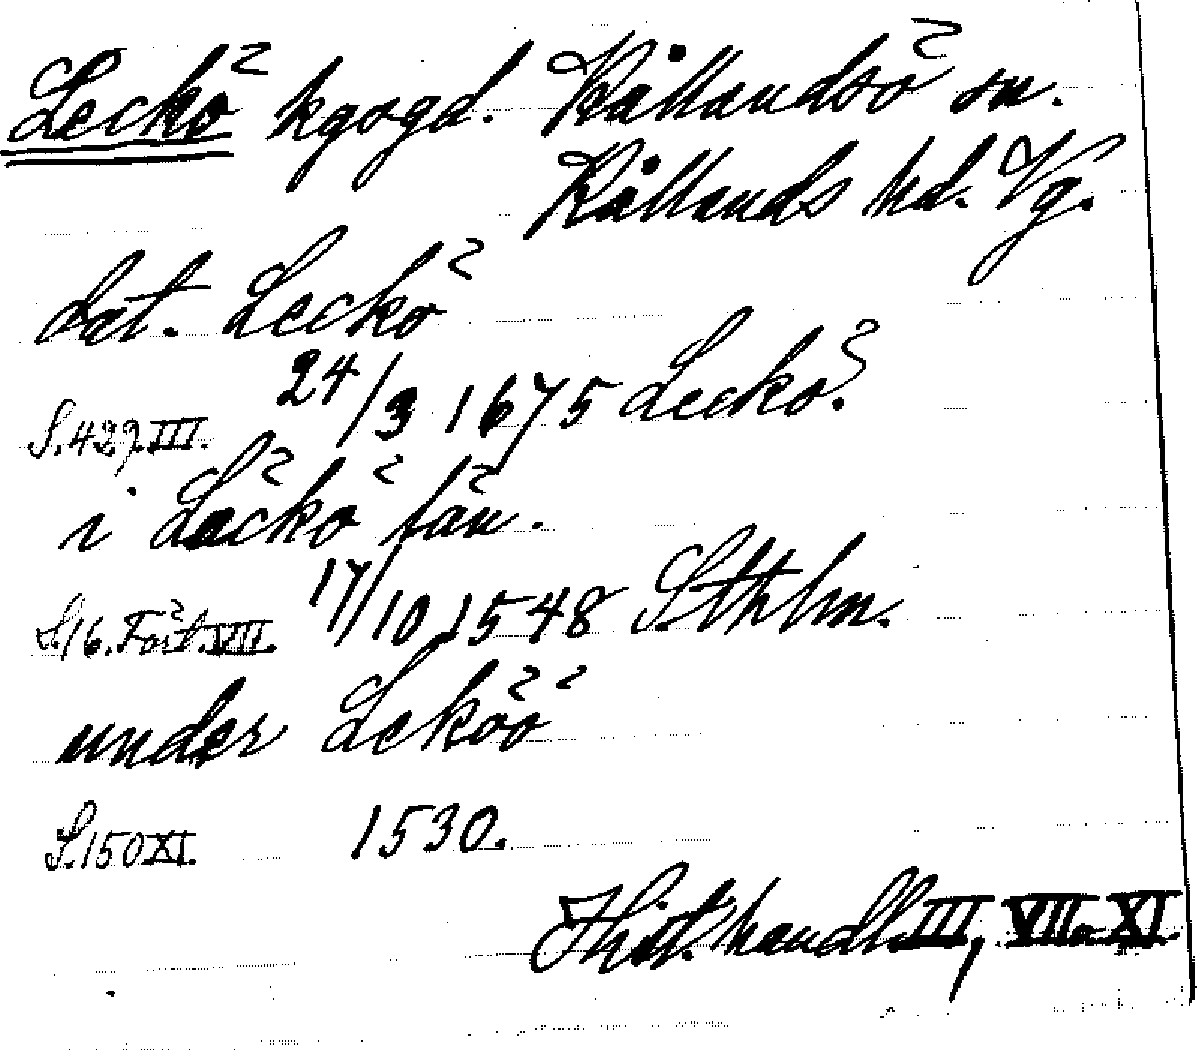 Leckö kgogd. Kållandsö sn.
Kållands hd. Vg.
dat. Leckö
S. 427. III. 24/3 1675 Leckö.
i Läckö län.
S. 16. Fört. VII. 17/10 1548 Sthlm.
under Leköö
S. 150 XI. 1530.
Hist. handl. III, VII o XI.